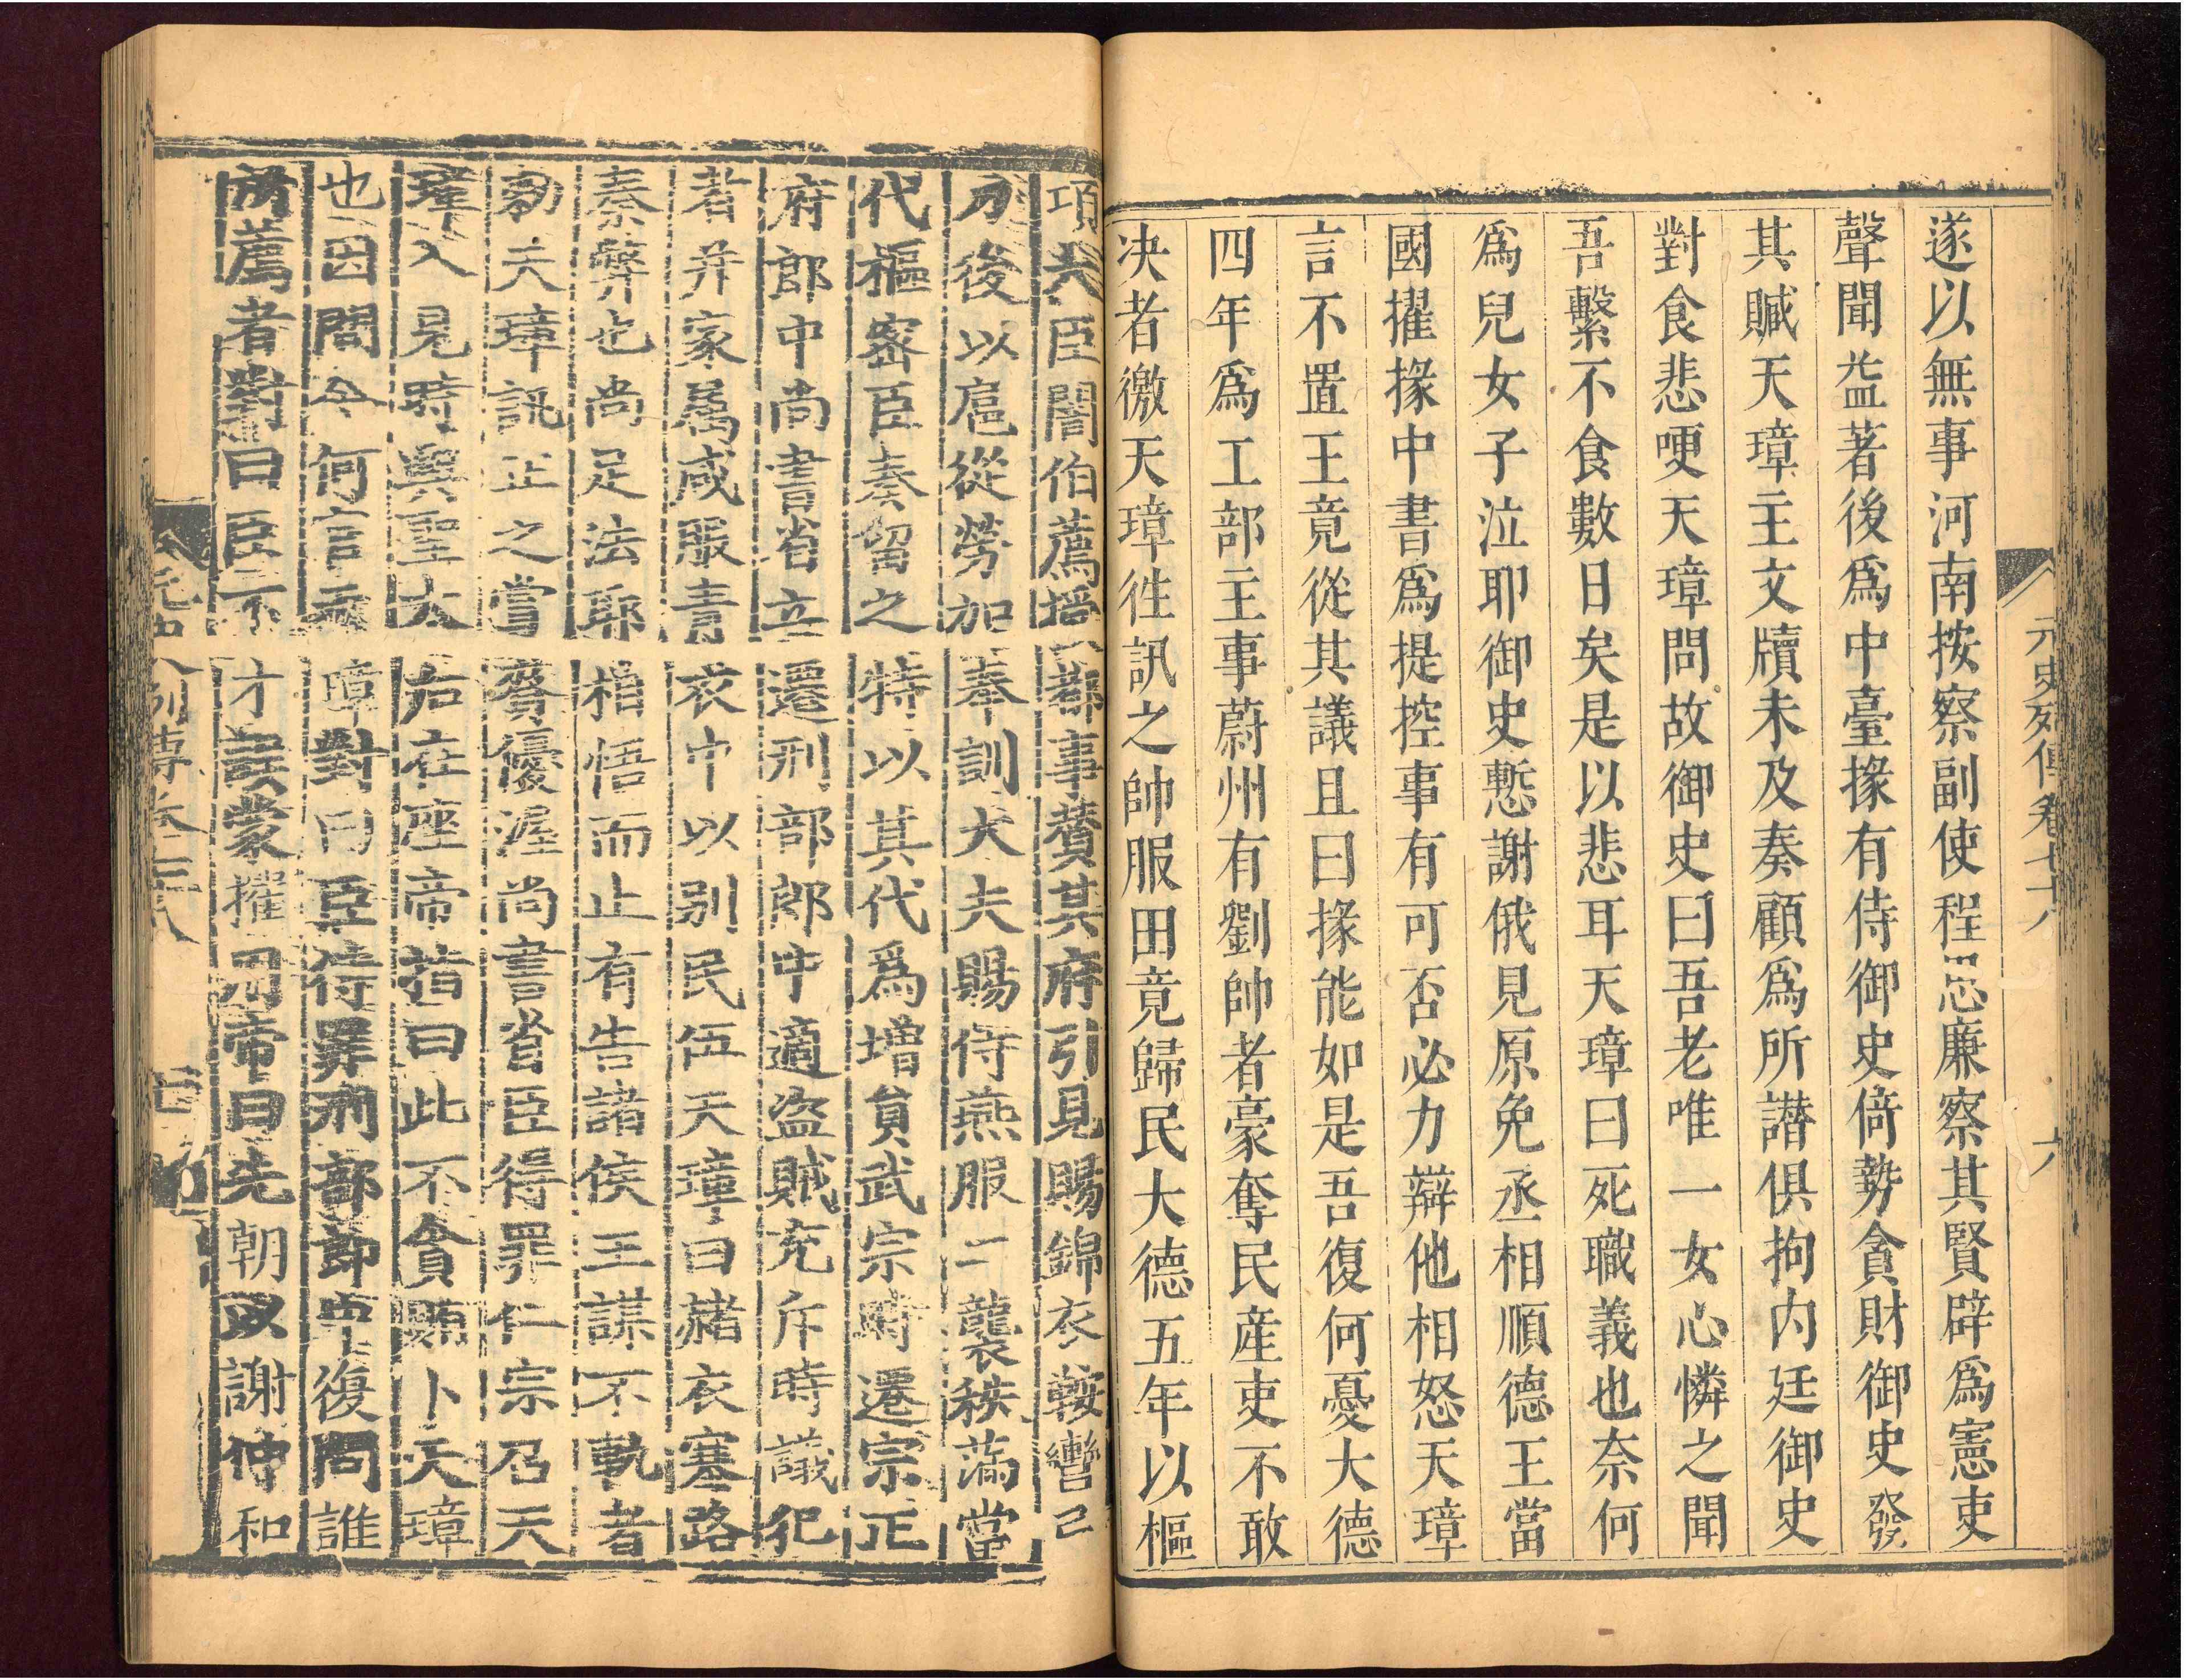 元史列傳卷七十八
六
遂以無事河南按察副使程思廉察其賢辟爲憲吏
聲聞益著後爲中臺掾有侍御史倚勢貪財御史發
其贓天璋主文牘未及奏顧爲所譖俱拘內廷御史
對食悲哽天璋問故御史曰吾老唯一女心憐之聞
吾繫不食數日矣是以悲耳天璋曰死職義也奈何
爲兒女子泣耶御史慙謝俄見原免丞相順德王當
國擢掾中書爲提控事有可否必力辯他相怒天璋
言不置王竟從其議且曰掾能如是吾復何憂大德
四年爲工部主事蔚州有劉帥者豪奪民産吏不敢
决者徼天璋徃訊之帥服田竟歸民大德五年以樞
大臣闇伯薦授都事贊其府引見賜錦衣鞍轡弓
刀後以扈從勞加奉訓大夫賜侍燕服二襲秩滿當
代樞密臣奏留之特以其代爲增員武宗時遷宗正
府郎中尚書省立遷刑部郎中適盗賊充斥時議犯
者并家屬咸服青衣巾以别民伍天璋曰赭衣塞路
秦弊也尚足法耶相悟而止有告諸侯王謀不軌者
勑天璋訊正之賞賚優渥尚書省臣得罪仁宗召天
璋入見時興聖太后在座帝指曰此不貪賄卜天璋
也因問今何官天璋對曰臣待罪刑部郎中復問誰
所薦者對曰臣不才誤蒙擢用帝曰先朝以謝仲和